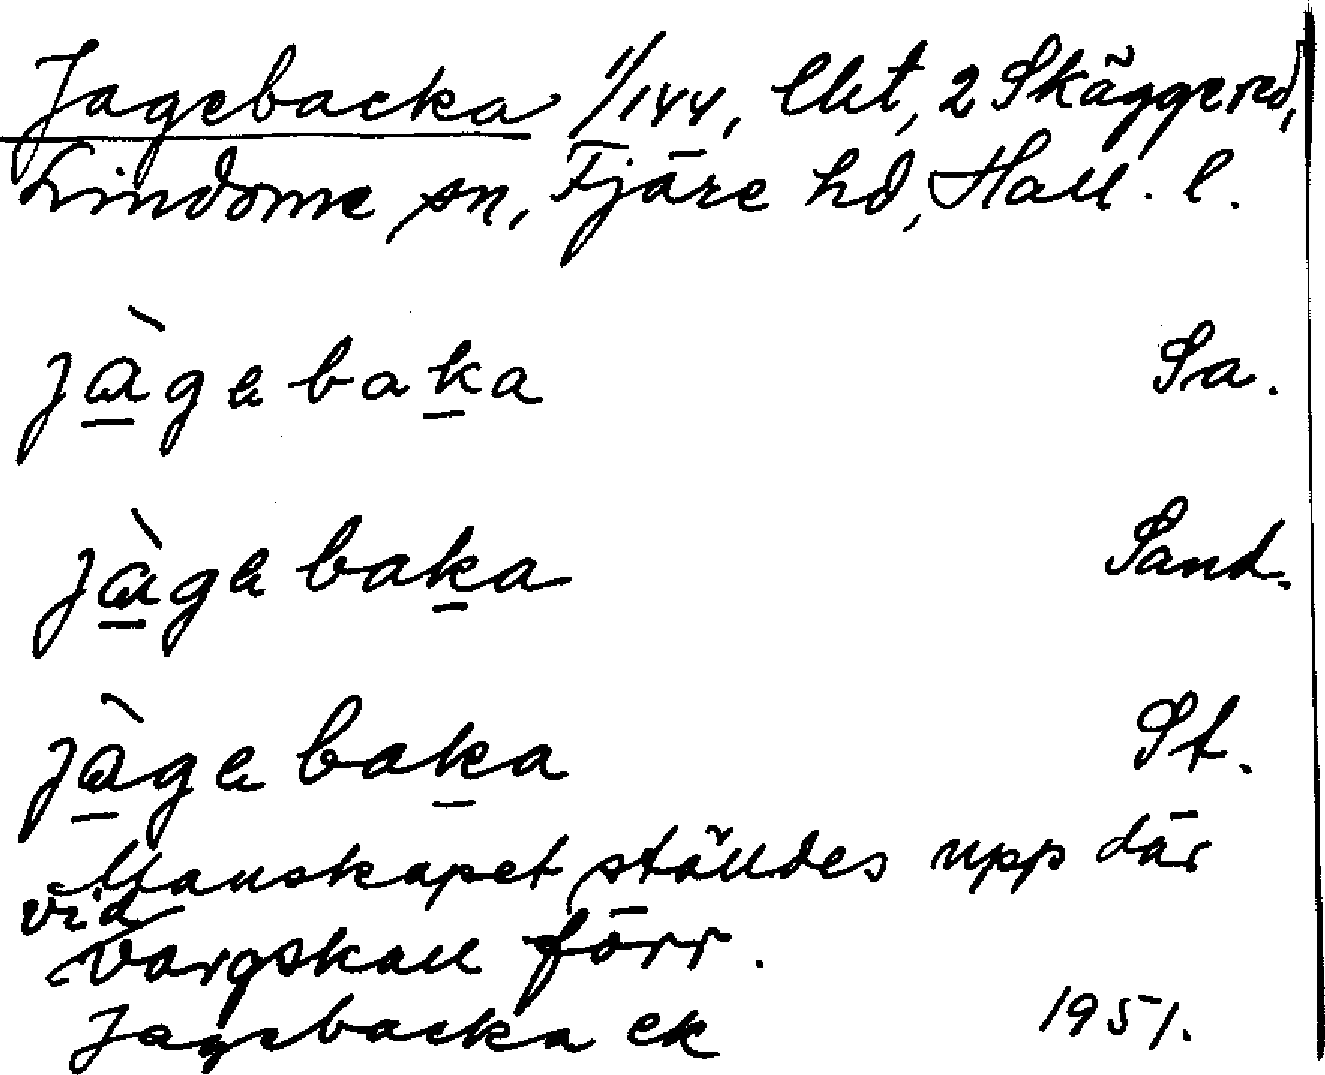 Jagebacka 11/144, Ckt, 2 Skäggered,
Lindome sn, Fjäre hd, Hall. l.
jàgebaka Sa.
jàgebaka Sand.
jàgebaka St.
Manskapet ställdes upp där
vid
vargskall förr.
Jagebacka ek 1951.